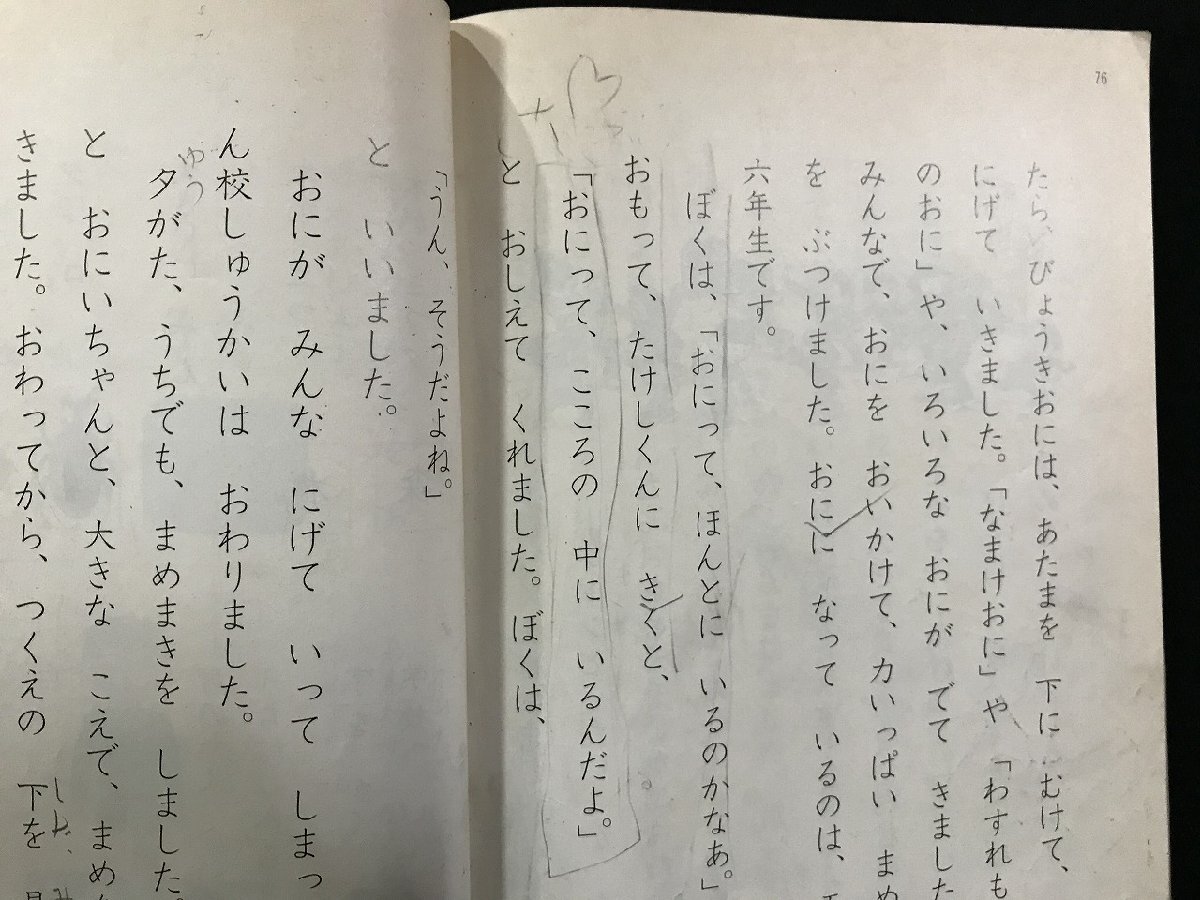 76
たら、びょうきおには、あたまを 下に むけて、
にげて いきました。「なまけおに」や 「わすれも
のおに」や、いろいろな おにが でて きました
みんなで、おにを おいかけて、力いっぱい まめ
を ぶつけました。おにに なって いるのは、
六年生です。
ぼくは、「おにって、ほんとに いるのかなあ。」
おもって、たけしくんに きくと、
「おにって、こころの 中に いるんだよ。」
と おしえて くれました。ぼくは、
「うん、そうだよね。」
と いいました。
おにが みんな にげて いって しまっ
ん校しゅうかいは おわりました。
ゆう
夕がた、うちでも、まめまきを しました。
と おにいちゃんと、大きな こえで、まめ
きました。おわってから、つくえの 下を